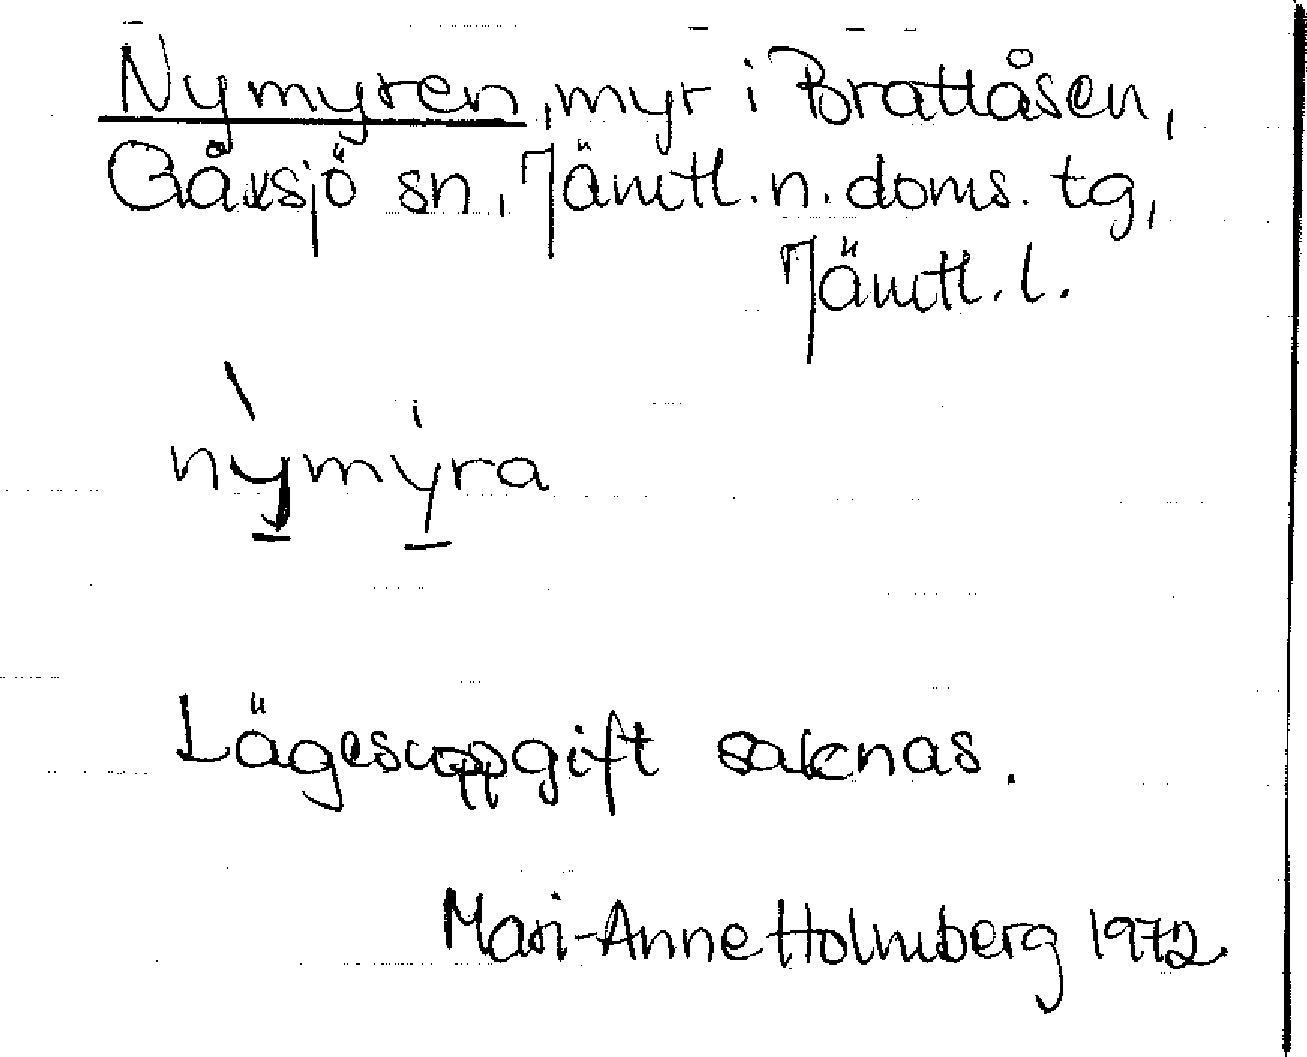 Nymyren, myr i Brattåsen,
Gåxsjö sn, Jämtl. n. doms. tg,
Jämtl. l.
nỳmýra
Lägesuppgift saknas.
Mari-Anne Holmberg 1972.